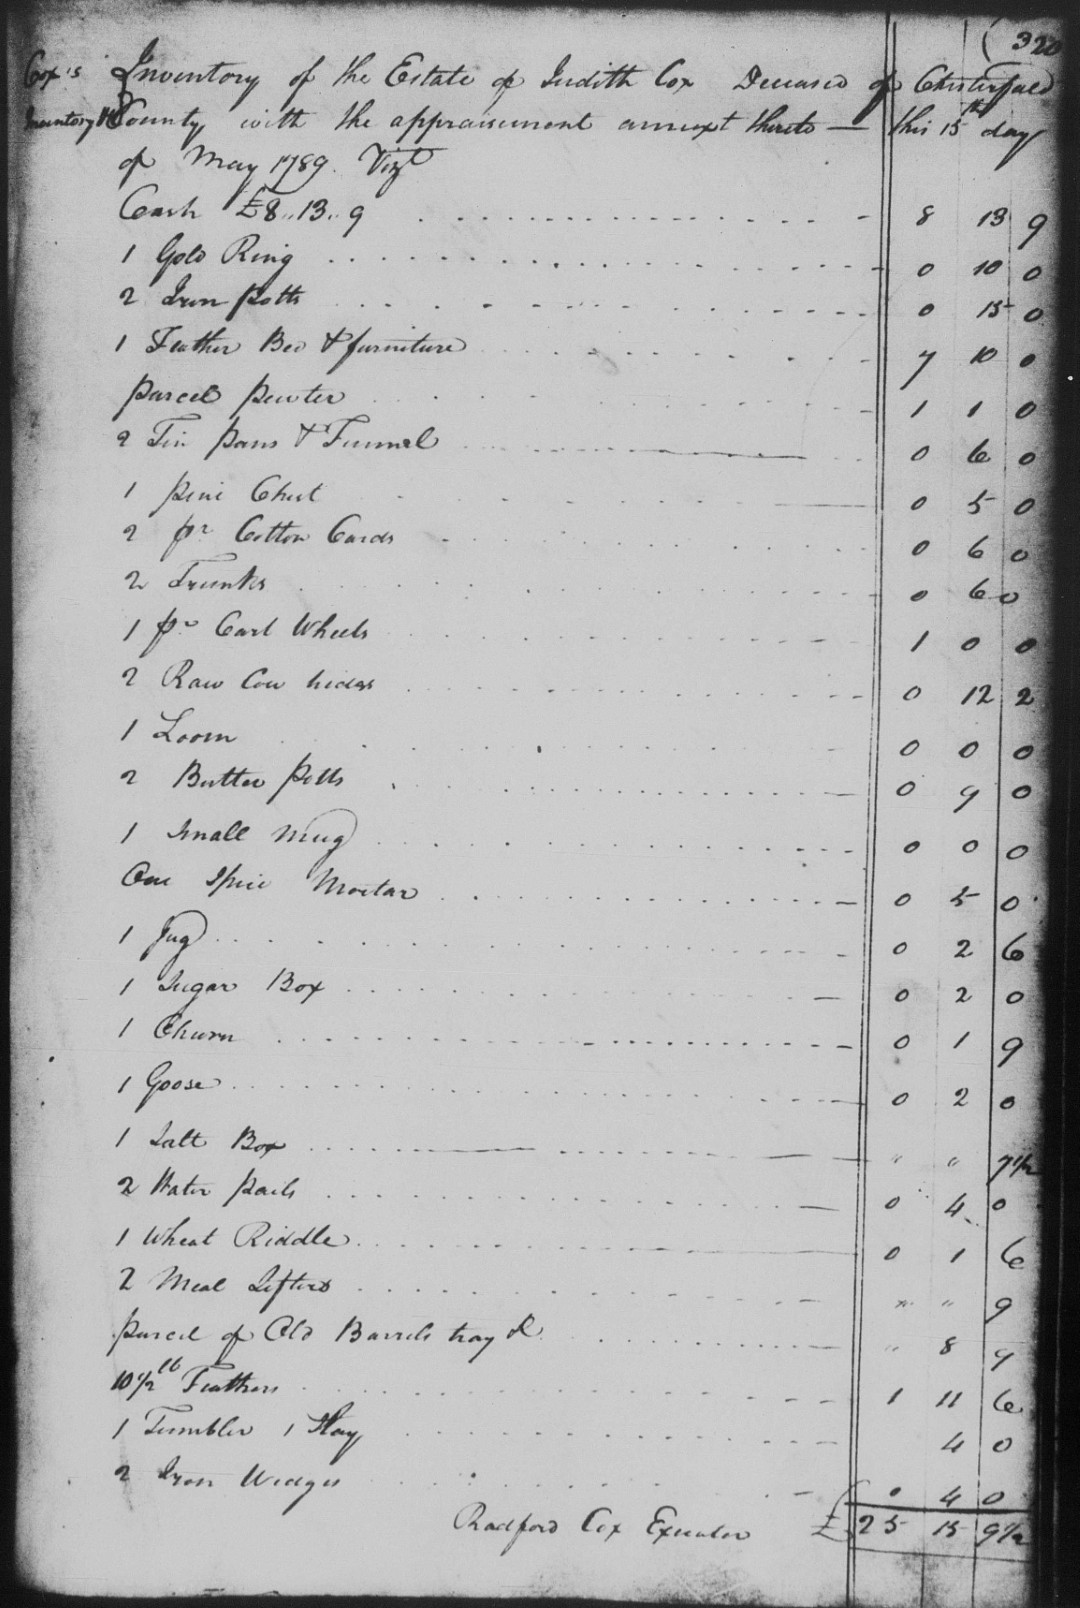 (320
Cox's Inventory of the Estate of Judith Cox Deceased of Chesterfield
Inventory &c County with the appraisement annext thereto — this 15th day
of May 1789. Vizt
Cash £8..13..9 8 13 9
1 Gold Ring 0 10 0
2 Iron potts 0 15 0
1 Feather Bed & furniture 7 10 0
parcel pewter 1 1 0
2 Tin pans & Funnel 0 6 0
1 pine Chest 0 5 0
2 pr Cotton Cards 0 6 0
2 Trunks 0 6 0
1 pr Cart Wheels 1 0 0
2 Raw Cow hides 0 12 2
1 Loom 0 0 0
2 Butter potts 0 9 0
1 Small Mug 0 0 0
One Spice Mortar 0 5 0
1 Jug 0 2 6
1 Sugar Box 0 2 0
1 Churn 0 1 9
1 Goose 0 2 0
1 Salt Box " " 7 1/2
2 Water pails 0 4 0
1 Wheat Riddle 0 1 6
2 Meal Sifters " " 9
parcel of Old Barrels tray & " 8 9
10 1/2 lb Feathers 1 11 6
1 Tumbler 1 Slay 4 0
2 Iron Wedges 0 4 0
Radford Cox Executor £25 15 9 1/2